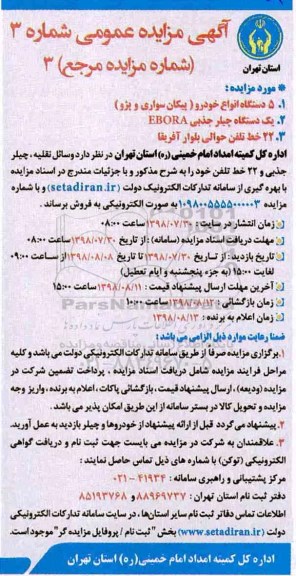 آگهی مزایده عمومی شماره ۳
(شماره مزایده مرجع) ۳
استان تهران
* مورد مزایده :
۱. ۵ دستگاه انواع خودرو ( پیکان سواری و پژو )
۲. یک دستگاه چیلر جذبی EBORA
۳. ۲۲ خط تلفن حوالی بلوار آفریقا
اداره کل کمیته امداد امام خمینی(ره) استان تهران در نظر دارد وسائل نقلیه ، چیلر
جذبی و ۲۲ خط تلفن خود را به شرح مذکور و با جزئیات مندرج در اسناد مزایده
با بهره گیری از سامانه تدارکات الکترونیک دولت (setadiran.ir) و با شماره
مزایده به صورت الکترونیکی به فروش برساند .
زمان انتشار در سایت : ۱۳۹۸/۰۷/۳۰ ساعت ۰۸:۰۰
مهلت دریافت اسناد مزایده (سامانه) : از تاریخ ۱۳۹۸/۰۷/۳۰ ساعت ۰۸:۰۰
تاریخ بازدید : از تاریخ ۱۳۹۸/۰۷/۳۰ تا تاریخ ۱۳۹۸/۰۸/۰۸ از ساعت ۰۹:۰۰
لغایت ۱۵:۰۰ (به جزء پنجشنبه و ایام تعطیل)
آخرین مهلت ارسال پیشنهاد قیمت : ۱۳۹۸/۰۸/۱۱ ساعت ۱۵:۰۰
زمان بازگشائی : ۱۳۹۸/۰۸/۱۲ ساعت ۱۰:۰۰
زمان اعلام به برنده : ۱۳۹۸/۰۸/۱۳
ضمنا رعایت موارد ذیل الزامی می باشد :
۱. برگزاری مزایده صرفا از طریق سامانه تدارکات الکترونیکی دولت می باشد و کلیه
مراحل فرایند مزایده شامل دریافت اسناد مزایده ، پرداخت تضمین شرکت در
مزایده (ودیعه) ، ارسال پیشنهاد قیمت ، بازگشائی پاکات ، اعلام به برنده ، واریز وجه
مزایده و تحویل کالا در بستر سامانه از این طریق امکان پذیر می باشد .
۲. پیشنهاد می گردد قبل از ارائه پیشنهاد از خودروها و چیلر بازدید به عمل آورید.
۳. علاقمندان به شرکت در مزایده می بایست جهت ثبت نام و دریافت گواهی
الکترونیکی (توکن) با شماره های ذیل تماس حاصل نمایند :
مرکز پشتیبانی و راهبری سامانه : ۴۱۹۳۴-۰۲۱
دفتر ثبت نام استان تهران : ۸۸۹۶۹۷۳۷ و ۸۵۱۹۳۷۶۸
اطلاعات تماس دفاتر ثبت نام سایر استان‌ها ، در سایت سامانه تدارکات الکترونیکی
دولت (www.setadiran.ir) بخش "ثبت نام / پروفایل مزایده گر" موجود است.
اداره کل کمیته امداد امام خمینی(ره) استان تهران